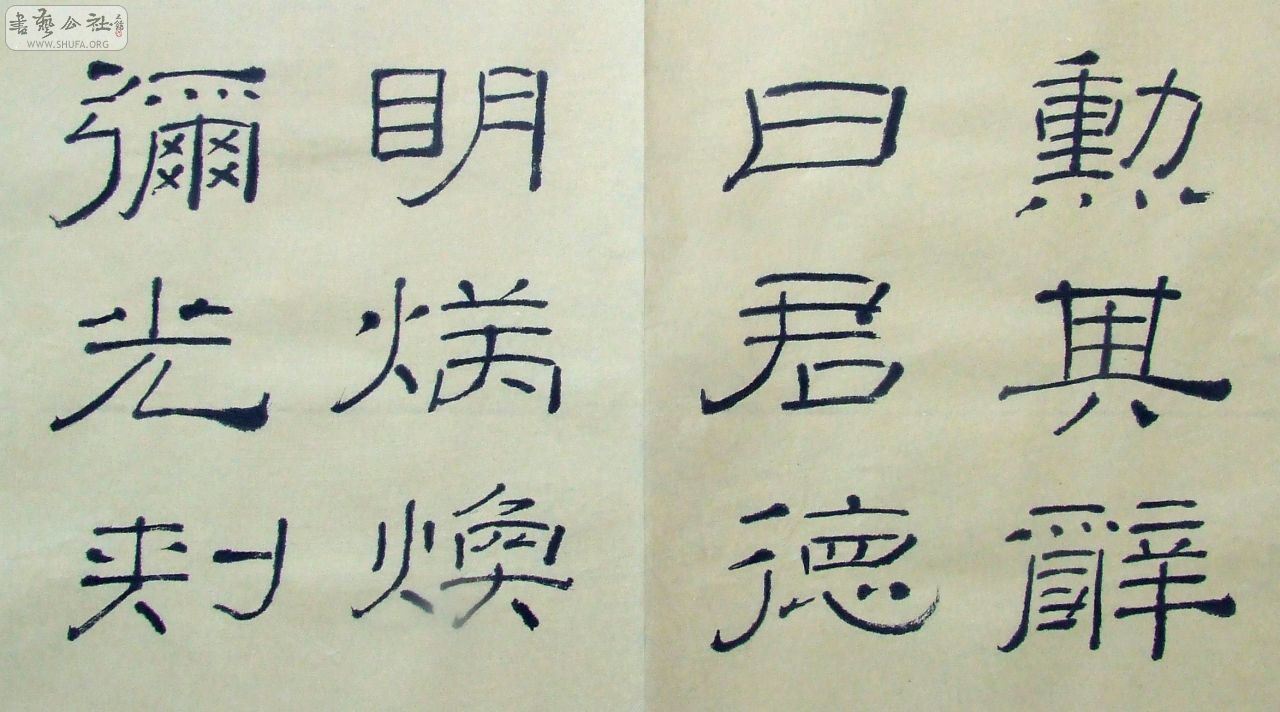 勳其辭
曰君德
明煥煥
彌光刻
書藝公社
WWW.SHUFA.ORG